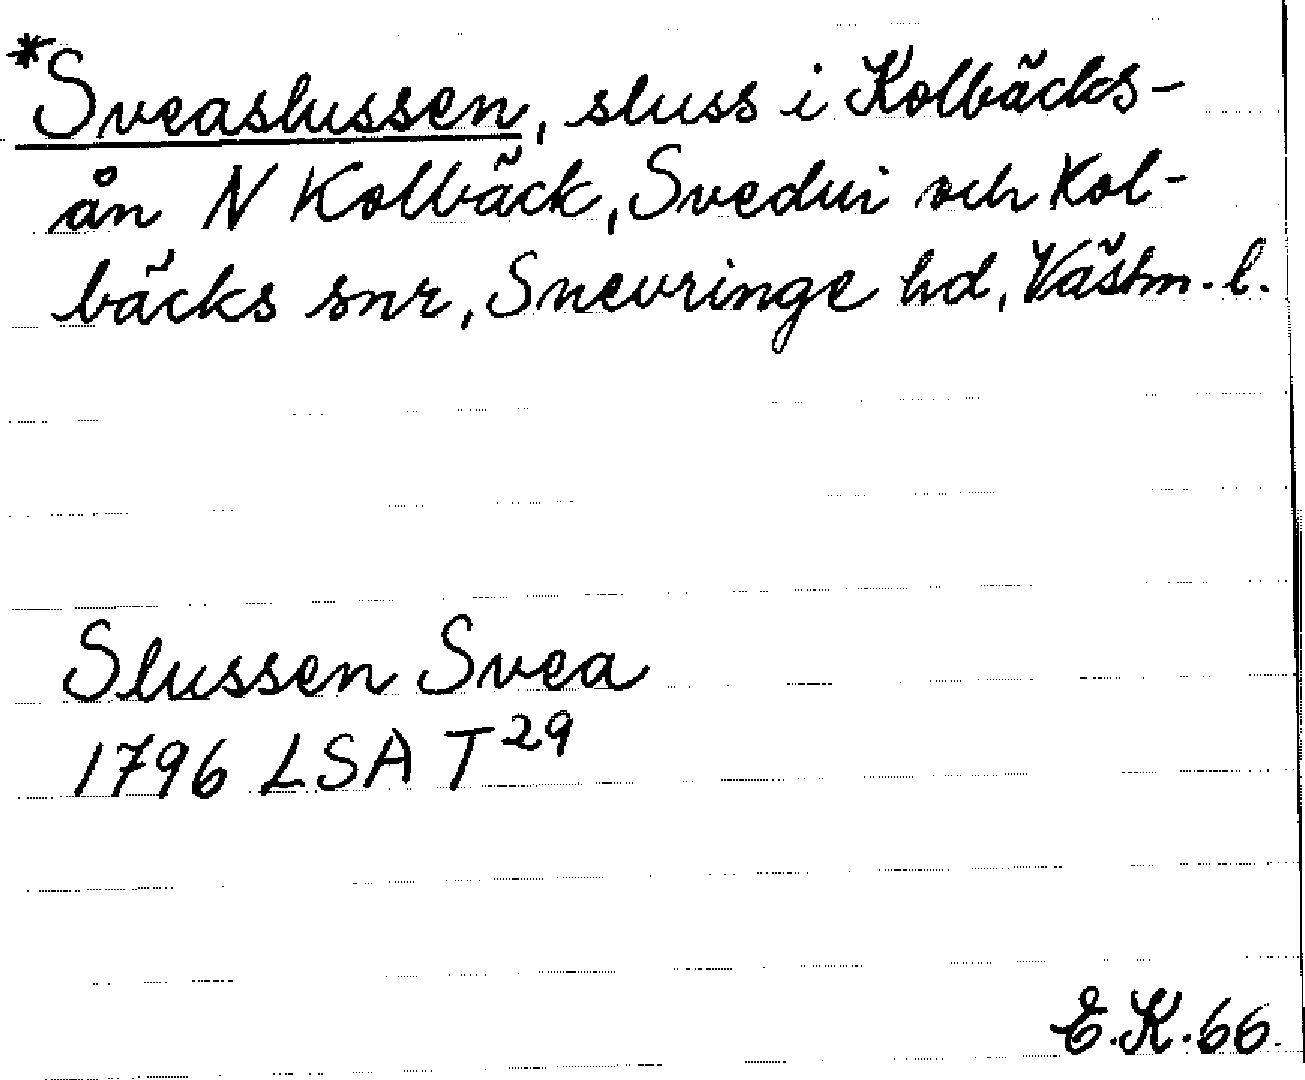 *Sveaslussen, sluss i Kolbäcks-
ån N Kolbäck, Svedvi och Kol-
bäcks snr, Snevringe hd, Västm. l.
Slussen Svea
1796 LSA T29
E.K. 66.